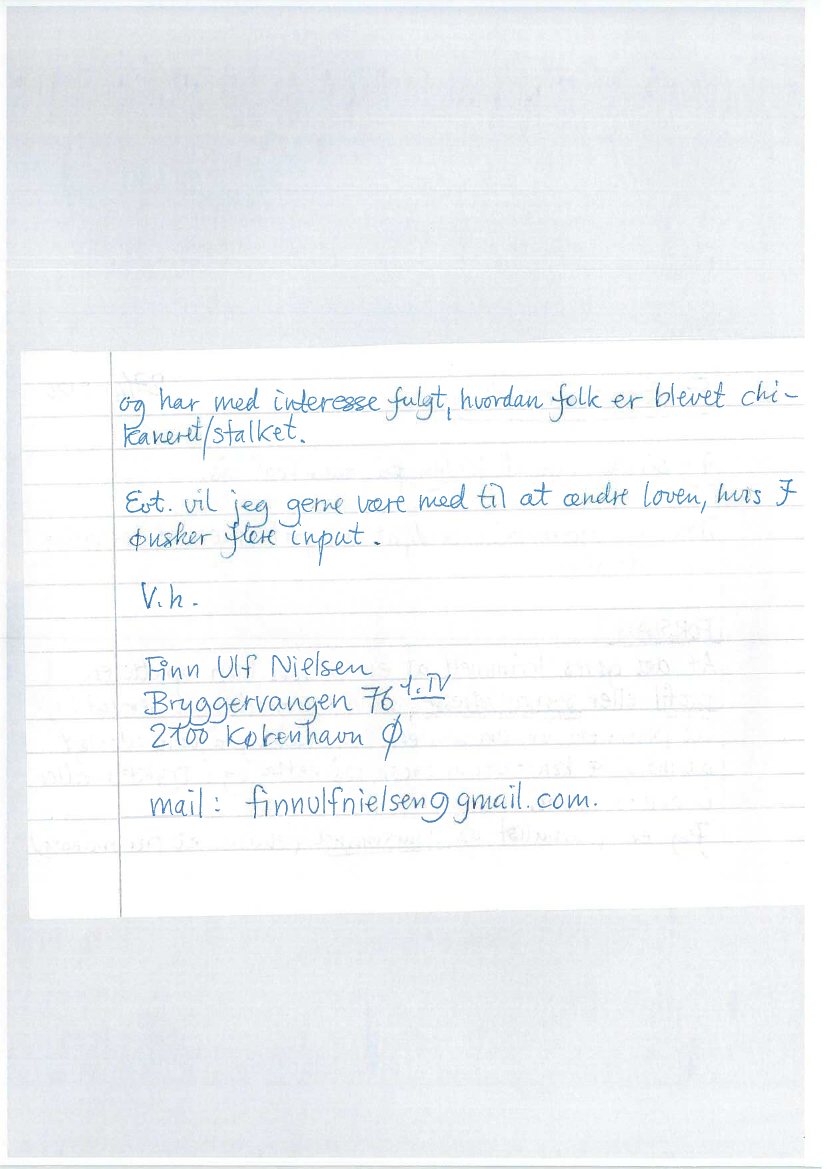 og har med interesse fulgt, hvordan folk er blevet chi-
kaneret/stalket.
Evt. vil jeg gerne være med til at ændre loven, hvis I
ønsker flere input.
V.h.
Finn Ulf Nielsen
Bryggervangen 76 1. TV
2100 København Ø
mail: finnulfnielsen@gmail.com.